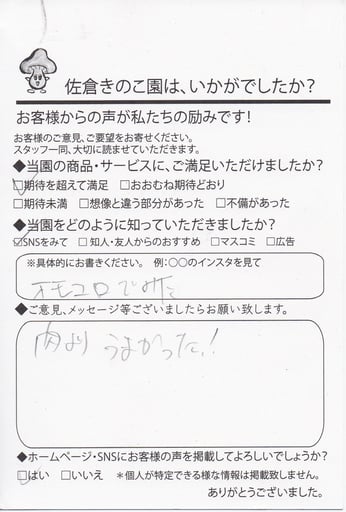 佐倉きのこ園は、いかがでしたか?
お客様からの声が私たちの励みです!
お客様のご意見、ご要望をお寄せください。
スタッフ一同、大切に読ませていただきます。
◆当園の商品・サービスに、ご満足いただけましたか?
☑期待を超えて満足 □おおむね期待どおり
□期待未満 □想像と違う部分があった □不備があった
◆当園をどのように知っていただきましたか?
☑SNSをみて □知人・友人からのおすすめ □マスコミ □広告
※具体的にお書きください。 例:○○のインスタを見て
オモコロでみた
◆ご意見、メッセージ等ございましたらお願い致します。
肉より うまかった!!
◆ホームページ・SNSにお客様の声を掲載してよろしいでしょうか?
☑はい □いいえ *個人が特定できる様な情報は掲載致しません。
ありがとうございました。